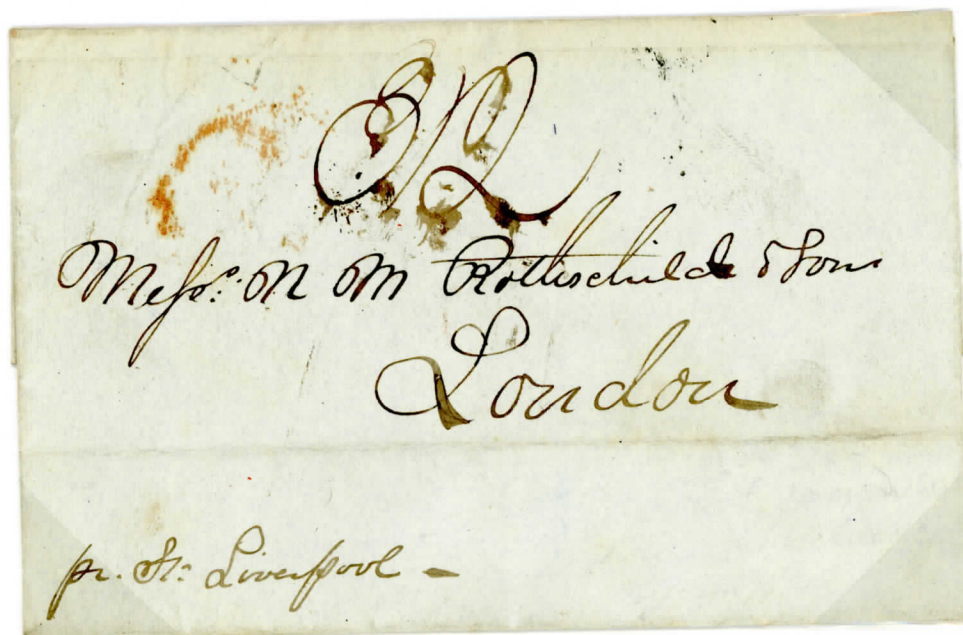 3/2
Messrs. N M Rothschild & Sons
London
pr. Str. Liverpool –